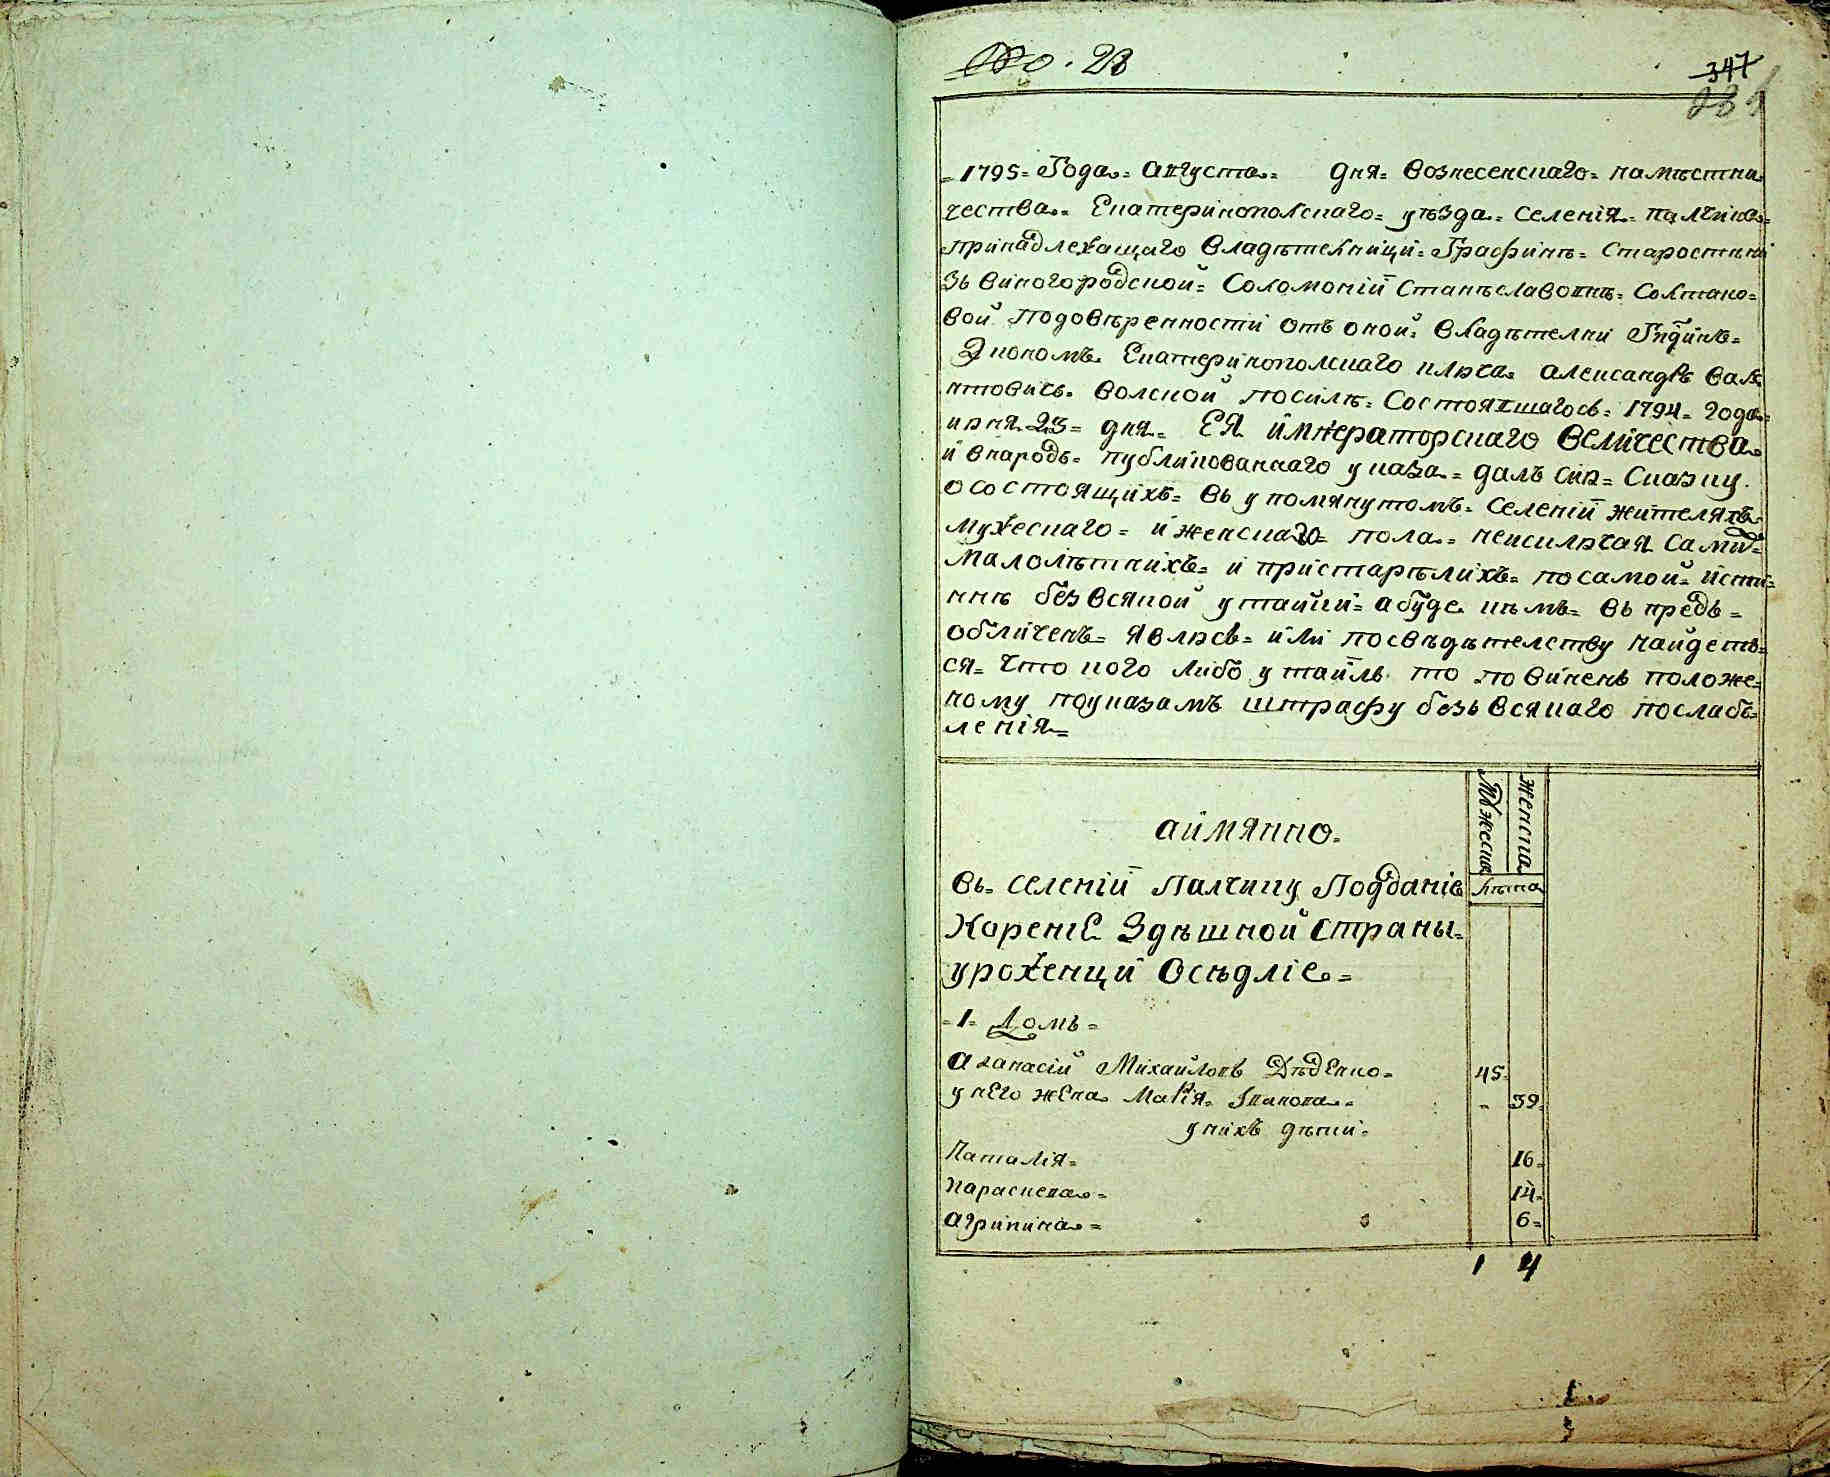 No. 23
347
231
1795= Года= августа= дня= вознесенскаго= намѣстни
чества= Екатеринополскаго= уѣзда= селенія= палчика=
принадлежащаго владѣтелници= Графинѣ= старостини
звѣниногородской= Соломоній Станѣславовнѣ= Солтано=
вой подовѣренности отъ оной владѣтелки
Экономъ Екатеринополскаго ключа александръ вал
нтовичъ волской посилѣ= Состоявшагось= 1794= года=
июня 23= дня= ЕЯ императорскаго величества
и внародъ= публикованнаго указа= далъ сию= сказку
осостоящихъ= въ упомянутомъ= селеній жителяхъ
мужескаго= и женскаго= пола= неисключая самих=
малолѣтнихъ= и пристарѣлихъ= посамой= исти=
ннѣ безвсякой утайки= абуде кѣмъ= въ предъ=
обличенъ= явлюсь= или посвѣдѣтелству найдетъ=
ся= что кого либо утаилъ то повиненъ положе=
ному поуказамъ штрафу безъ всякаго послабъ=
ленія=
аимянно=
Мужеска
женска
лѣта
въ= селеній Палчику Подданіе
Корение Здѣшной страны=
уроженци Осѣдліе=
=1= Домъ=
Афанасій Михайловъ Дѣденко= 45=
у него жена Марія Іванова= 39=
у нихъ дѣти=
Наталія= 16=
Параскева= 14=
Агрипина= 6=
1 4